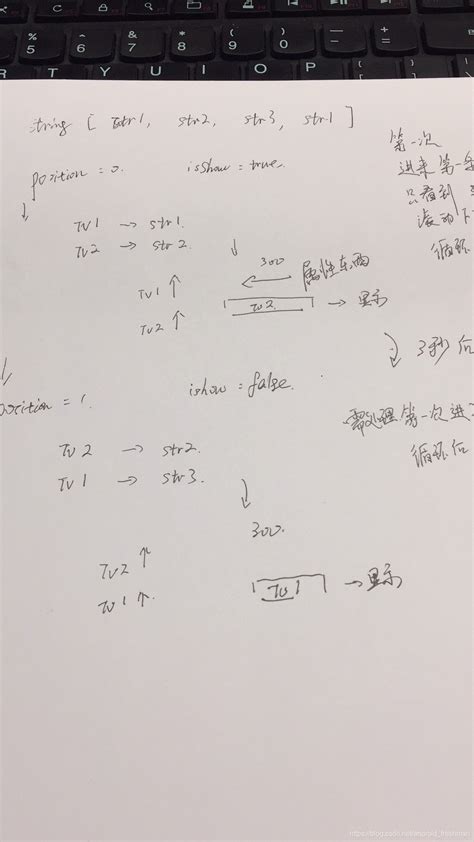 string [ str1, str2, str3, str1 ]
position = 0. isShow = true.
TV1 → str1.
TV2 → str2.
TV1 ↑
TV2 ↑
300
属性东西
TV2 → 显示
第一次
进来第一条
只看到
滚动下
循环
3秒后
position = 1. ishow = false.
TV2 → str2.
TV1 → str3.
需处理第一次进
循环后
300.
TV2 ↑
TV1 ↑
TV1 → 显示